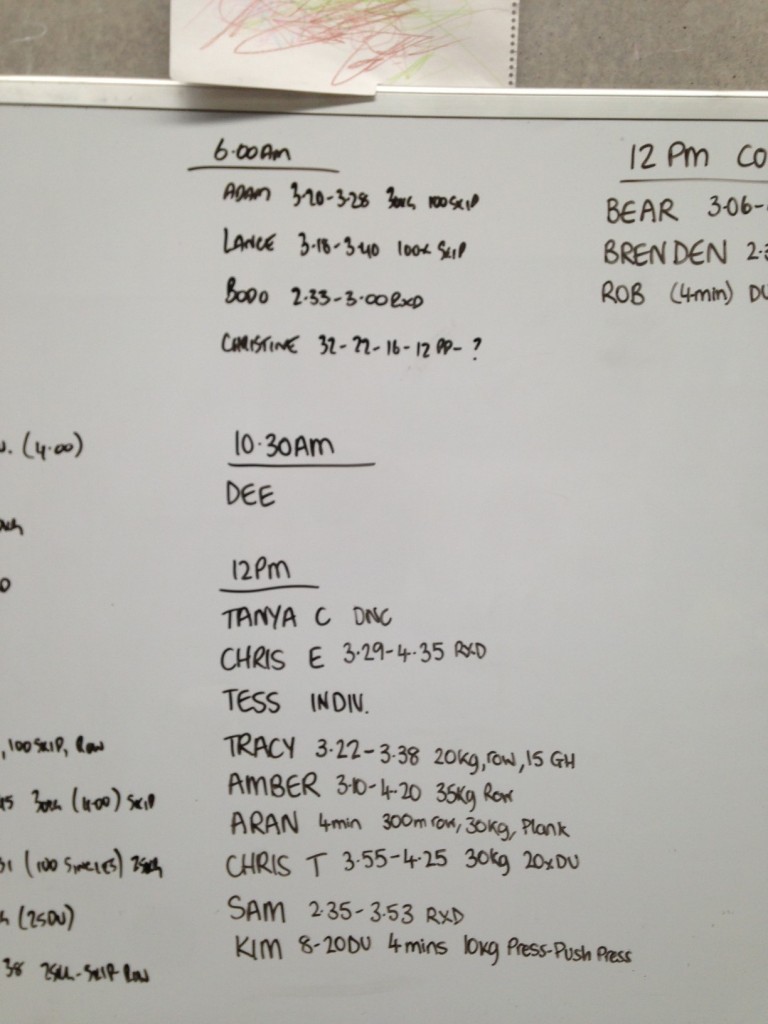 6.00Am
ADAM 3.20-3.28 30KG 100 SKIP
LANCE 3.18-3.40 100x SKIP
BODO 2.33-3.00 RXD
CHRISTINE 32-22-16-12 PP- ?
10.30AM
DEE
12Pm
TANYA C DNC
CHRIS E 3.29-4.35 RXD
TESS INDIV.
TRACY 3.22-3.38 20kg, row, 15 GH
AMBER 3.10-4.20 35kg Row
ARAN 4min 300m row, 30kg, Plank
CHRIS T 3.55-4.25 30kg 20xDU
SAM 2.35-3.53 RXD
KIM 8-20DU 4mins 10kg Press-Push Press
12 Pm CO
BEAR 3.06-
BRENDEN 2.3
ROB (4min) DU
. (4.00)
, 100 SKIP, Row
(4.00) SKIP
(100 SINGLES)
(25DU)
38 SKIP Row